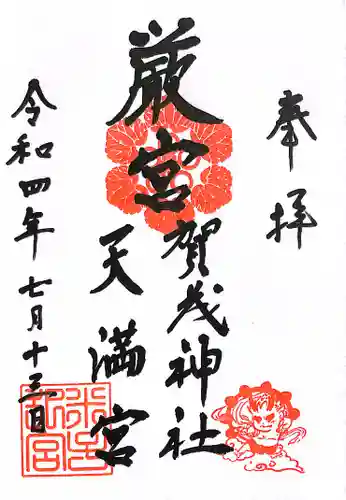 奉拝
厳宮
賀茂神社
天満宮
令和四年七月十三日